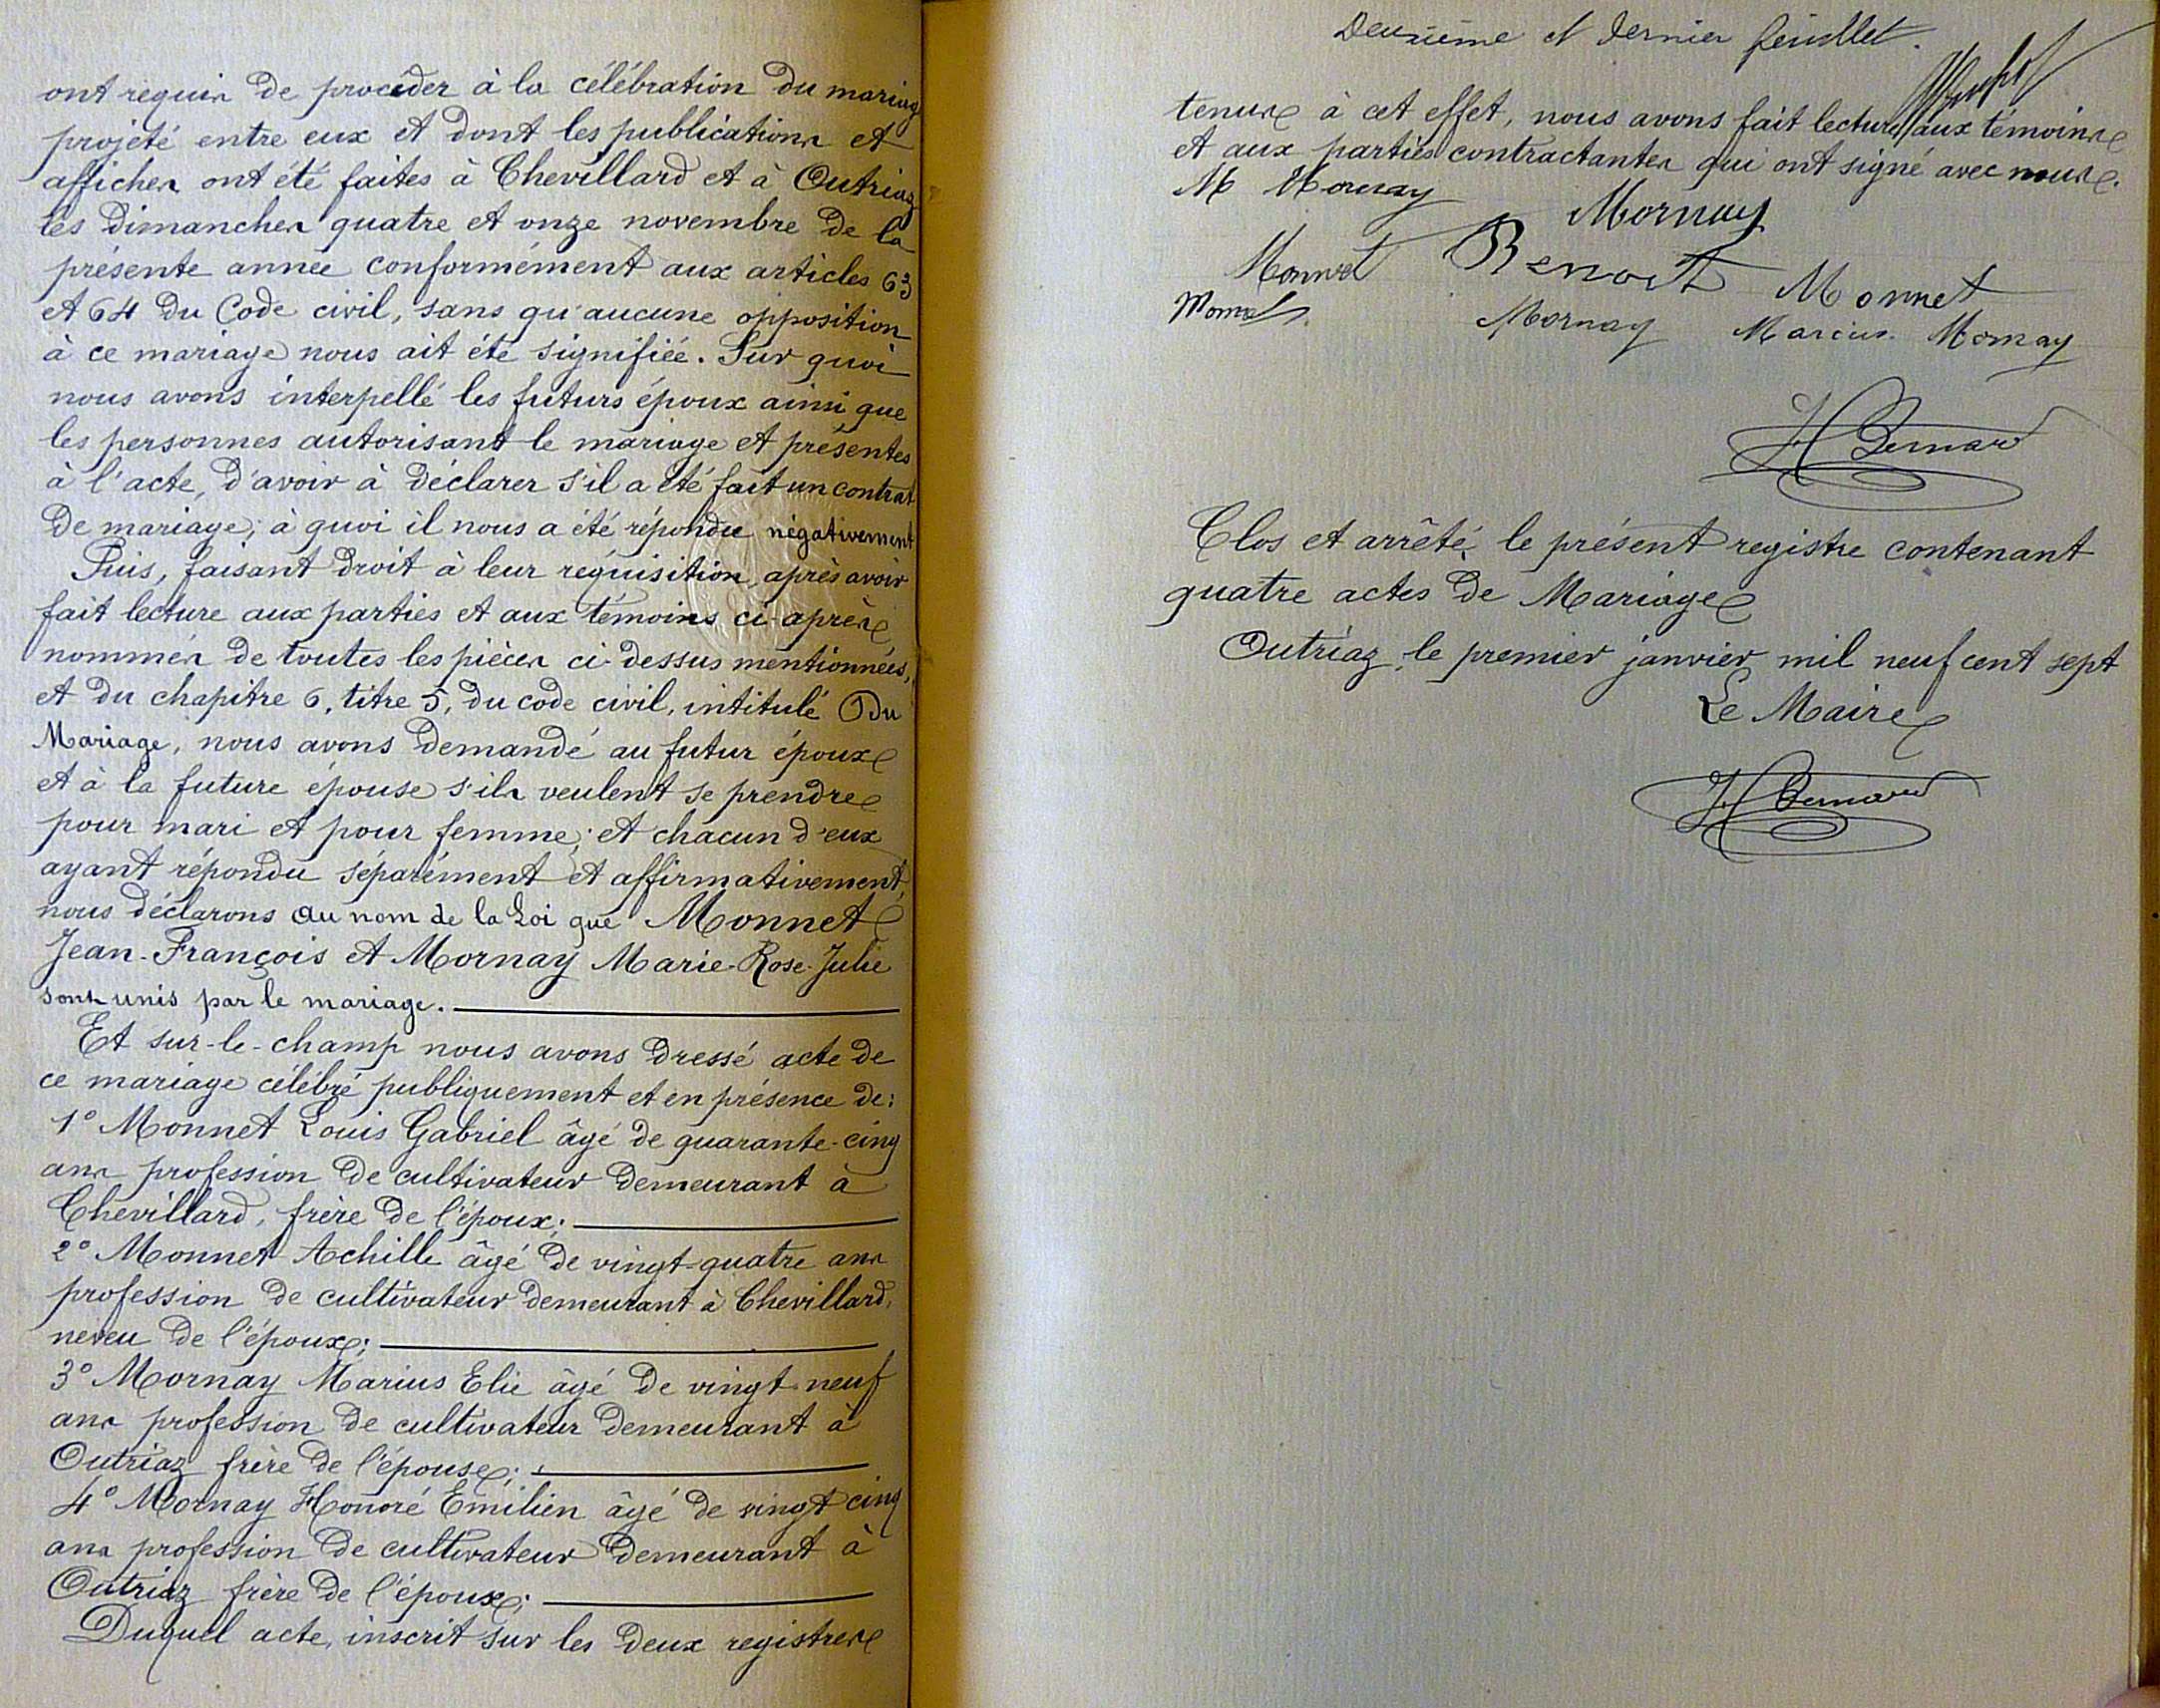 ont requis de procéder à la célébration du mariage
projeté entre eux et dont les publications et
affiches ont été faites à Chevillard et à Outriaz
les dimanches quatre et onze novembre de la
présente année conformément aux articles 63
et 64 du Code civil, sans qu'aucune opposition
à ce mariage nous ait été signifiée. Sur quoi
nous avons interpellé les futurs époux ainsi que
les personnes autorisant le mariage et présentes
à l'acte, d'avoir à déclarer s'il a été fait un contrat
de mariage; à quoi il nous a été répondu négativement
Puis, faisant droit à leur réquisition, après avoir
fait lecture aux parties et aux témoins ci-après
nommés de toutes les pièces ci-dessus mentionnées,
et du chapitre 6, titre 5, du code civil, intitulé Du
Mariage, nous avons demandé au futur époux
et à la future épouse s'ils veulent se prendre
pour mari et pour femme; et chacun d'eux
ayant répondu séparément et affirmativement,
nous déclarons au nom de la Loi que Monnet
Jean-François et Mornay Marie-Rose-Julie
sont unis par le mariage.
Et sur-le-champ nous avons dressé acte de
ce mariage célébré publiquement et en présence de:
1° Monnet Louis Gabriel âgé de quarante-cinq
ans profession de cultivateur demeurant à
Chevillard, frère de l'époux;
2° Monnet Achille âgé de vingt-quatre ans
profession de cultivateur demeurant à Chevillard,
neveu de l'époux;
3° Mornay Marius Elie âgé de vingt-neuf
ans profession de cultivateur demeurant à
Outriaz frère de l'épouse;
4° Mornay Honoré Emilien âgé de vingt cinq
ans profession de cultivateur demeurant à
Outriaz frère de l'époux;
Duquel acte, inscrit sur les deux registres
Deuxième et dernier feuillet.
tenus à cet effet, nous avons fait lecture aux témoins
et aux parties contractantes qui ont signé avec nous.
M Mornay
Mornay
Monnet Benoit Monnet
Monnet Mornay Marius Mornay
H Bernard
Clos et arrêté le présent registre contenant
quatre actes de Mariage
Outriaz, le premier janvier mil neuf cent sept
Le Maire
H Bernard